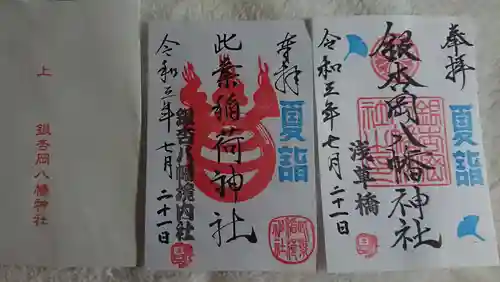 奉拝
銀杏岡八幡神社
浅草橋
夏詣
令和三年七月二十一日
銀杏岡八幡神社
奉拝
此葉稲荷神社
夏詣
銀杏八幡境内社
令和三年七月二十一日
上
銀杏岡八幡神社